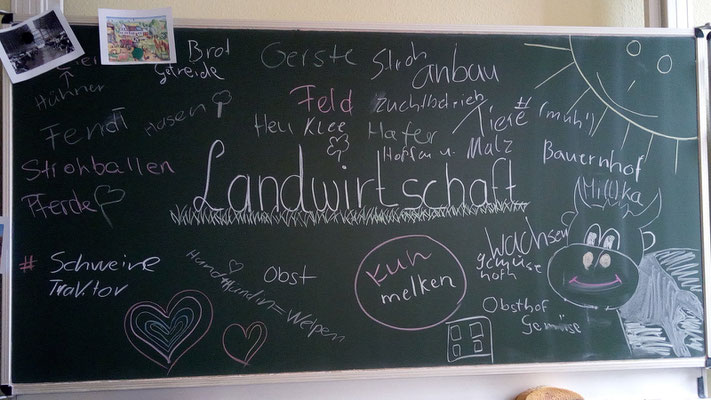 Brot
Getreide
Gerste
Stroh
anbau
Hühner
Feld
Zuchtbetrieb
Tiere
(müh')
Fendt
Hasen
Heu
Klee
Hafer
Hopfen u. Malz
Bauernhof
Strohballen
Landwirtschaft
Milka
Pferde
wachsen
gemüse
hofh
# Schweine
Traktor
Hund+Hündin=Welpen
Obst
Kuh
melken
Obsthof
Gemüse